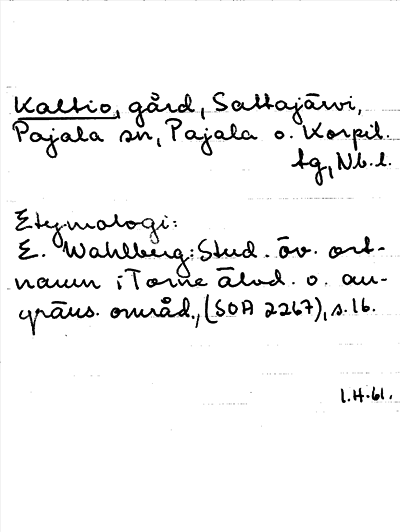 Kaltio, gård, Sattajärvi,
Pajala sn, Pajala o. Korpil.
tg, Nb. l.
Etymologi:
E. Wahlberg: Stud. öv. ort-
namn i Torne älvd. o. an-
gräns. områd., (SOA 2267), s. 16.
1.H.61.